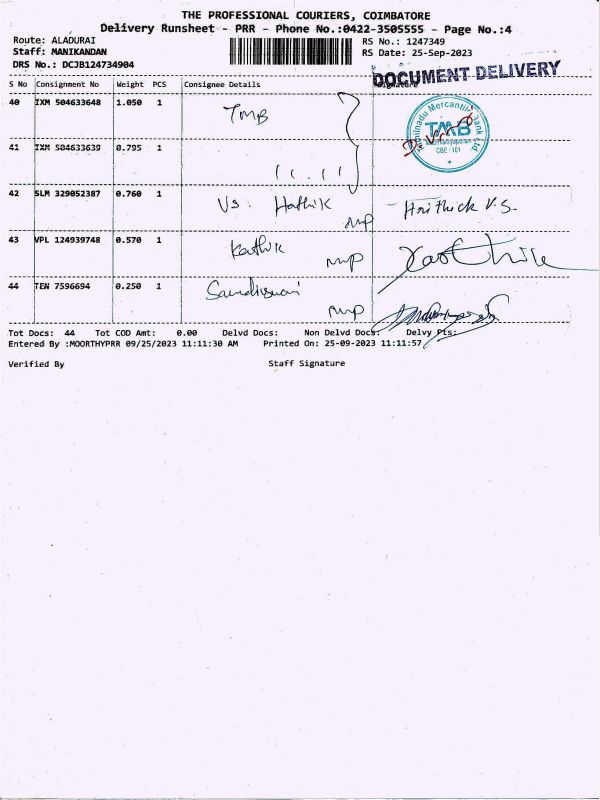 THE PROFESSIONAL COURIERS, COIMBATORE
Delivery Runsheet - PRR - Phone No.:0422-3505555 - Page No.:4
Route: ALADURAI
RS No.: 1247349
Staff: MANIKANDAN
RS Date: 25-Sep-2023
DRS No.: DCJB124734904
DOCUMENT DELIVERY
S No Consignment No Weight PCS Consignee Details Signature
40 IXM 504633648 1.050 1 TMB
Tamilnadu Mercantile Bank Ltd
TMB
CBE - 101
41 IXM 504633639 0.795 1 11 . 11
42 SLM 329052387 0.760 1 Vs. Hathik Hrithick V.S.
43 VPL 124939748 0.570 1 Karthik
44 TEN 7596694 0.250 1
Tot Docs: 44 Tot COD Amt: 0.00 Delvd Docs: Non Delvd Docs: Delvy Pts:
Entered By :MOORTHYPRR 09/25/2023 11:11:30 AM Printed On: 25-09-2023 11:11:57
Verified By Staff Signature